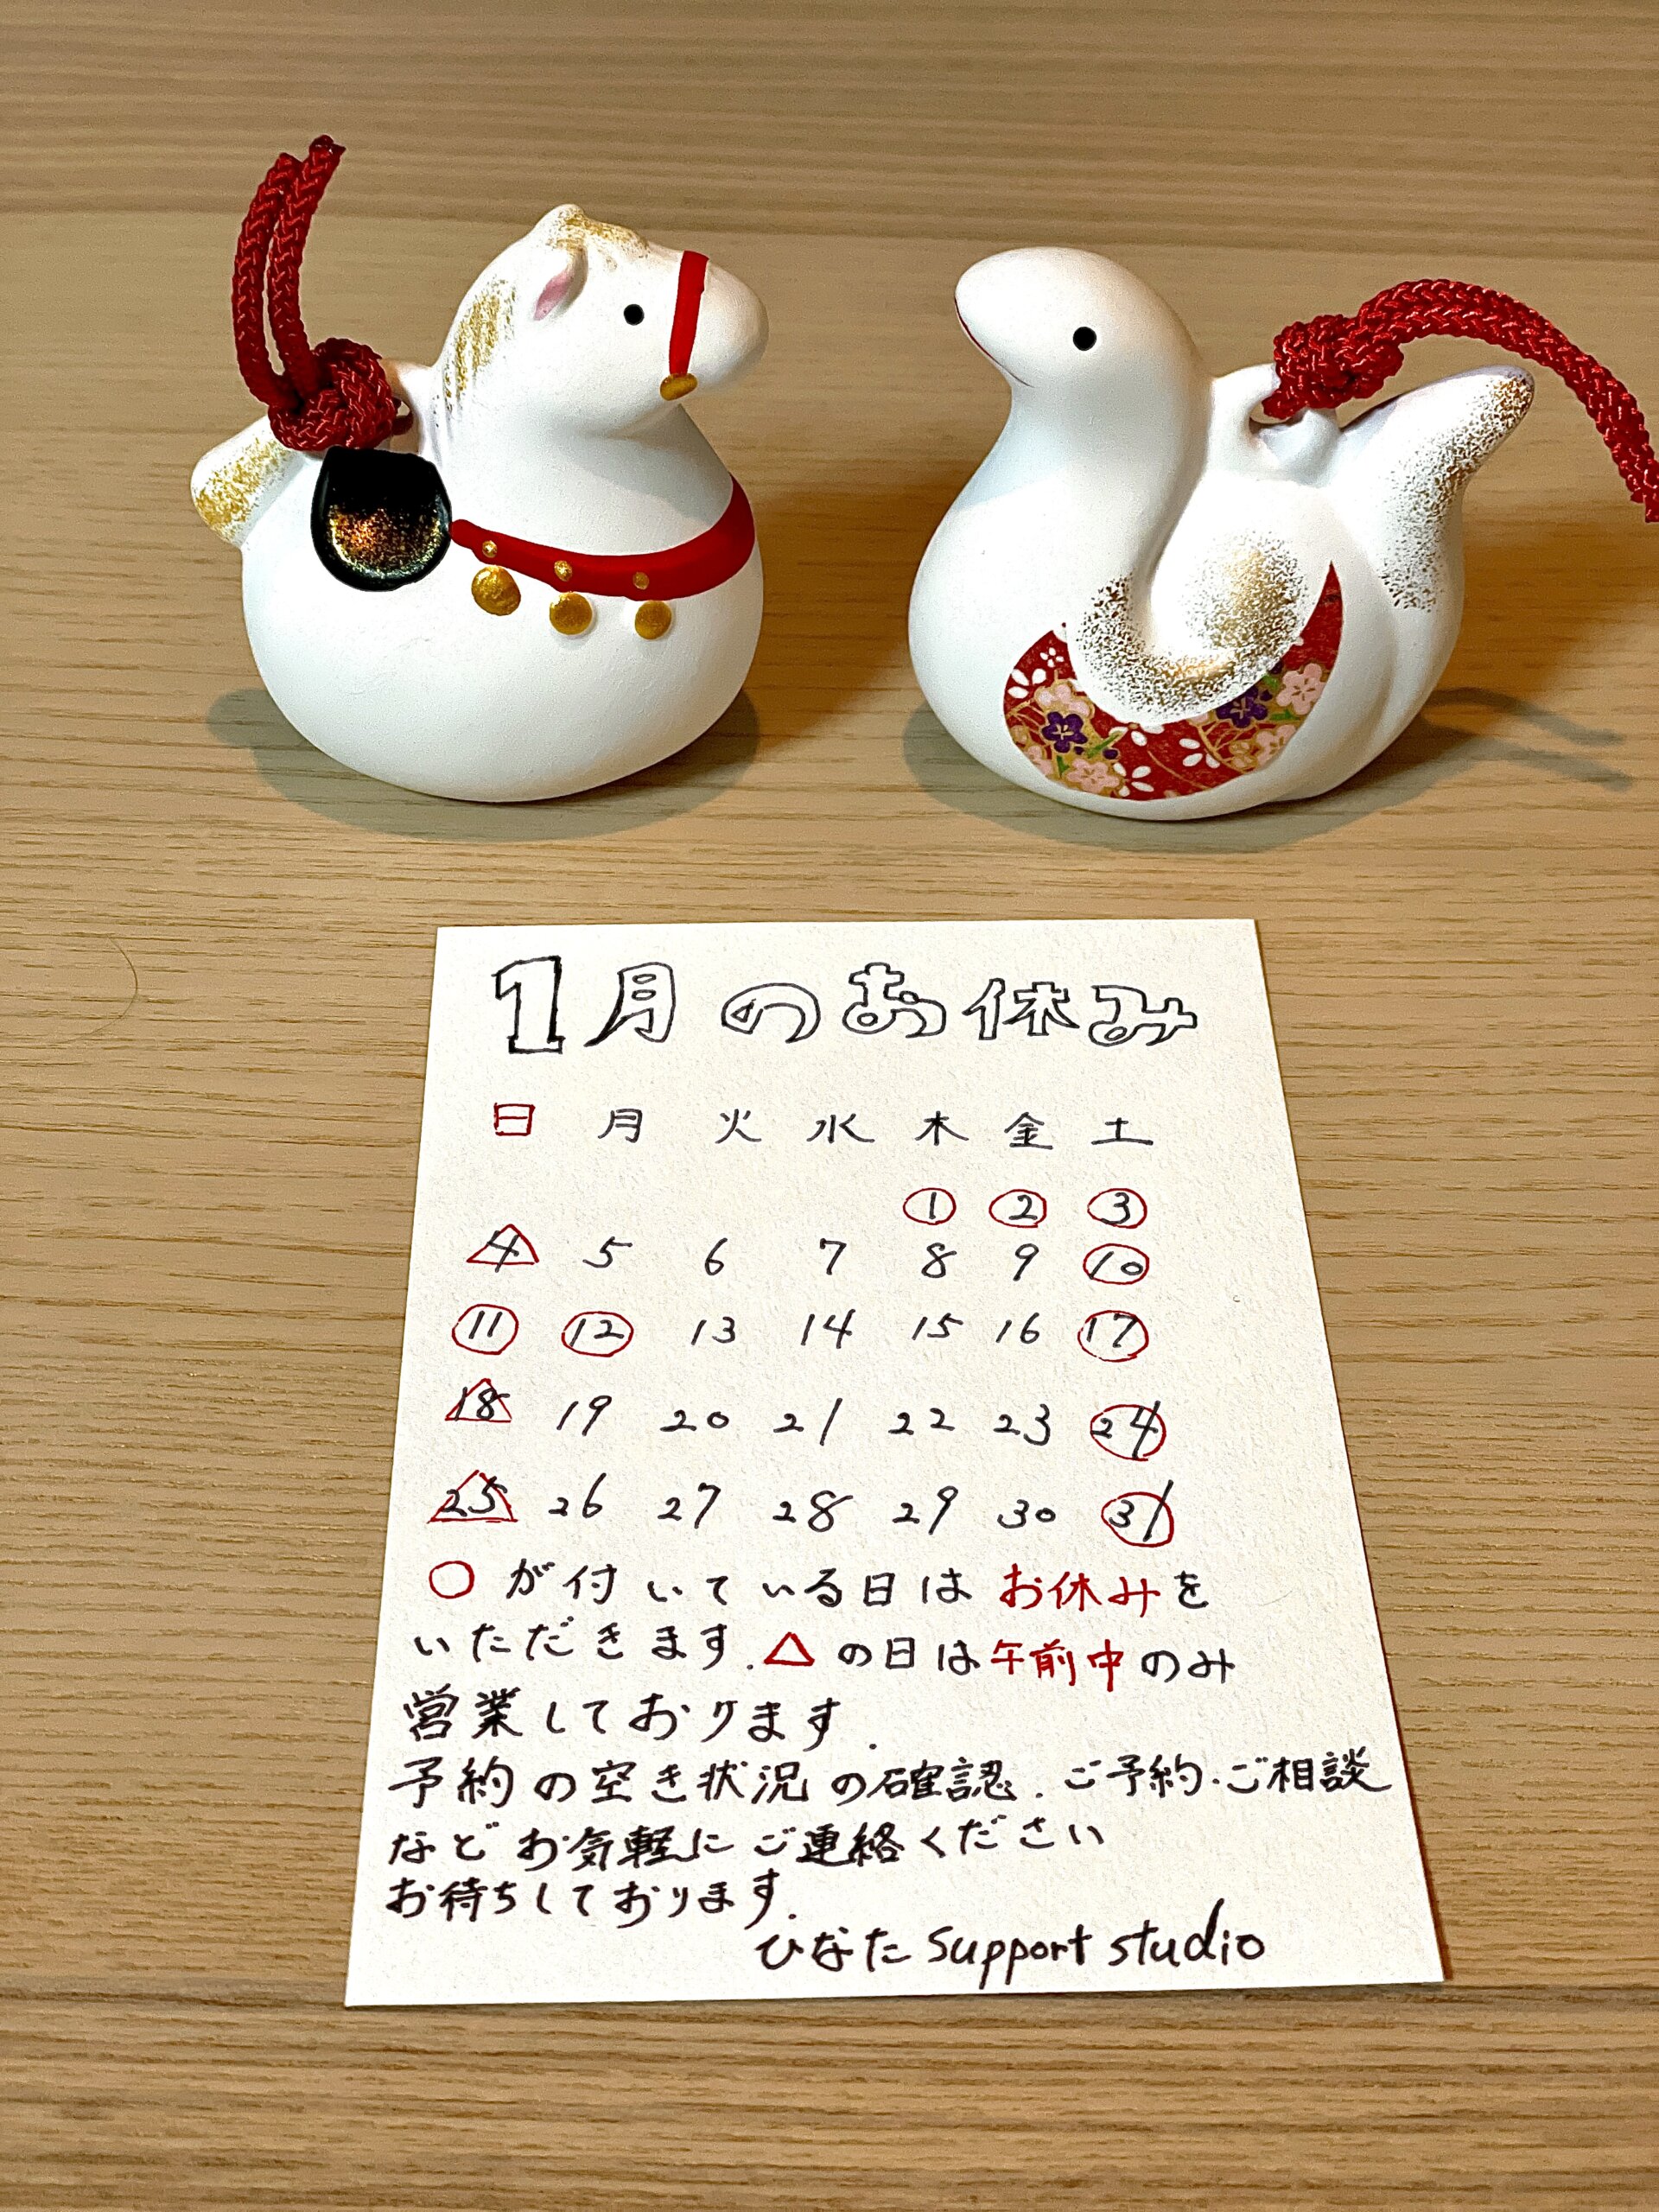 1月のお休み
日 月 火 水 木 金 土
1 2 3
4 5 6 7 8 9 10
11 12 13 14 15 16 17
18 19 20 21 22 23 24
25 26 27 28 29 30 31
○が付いている日はお休みを
いただきます.△の日は午前中のみ
営業しております.
予約の空き状況の確認.ご予約.ご相談
などお気軽にご連絡ください
お待ちしております.
ひなた support studio